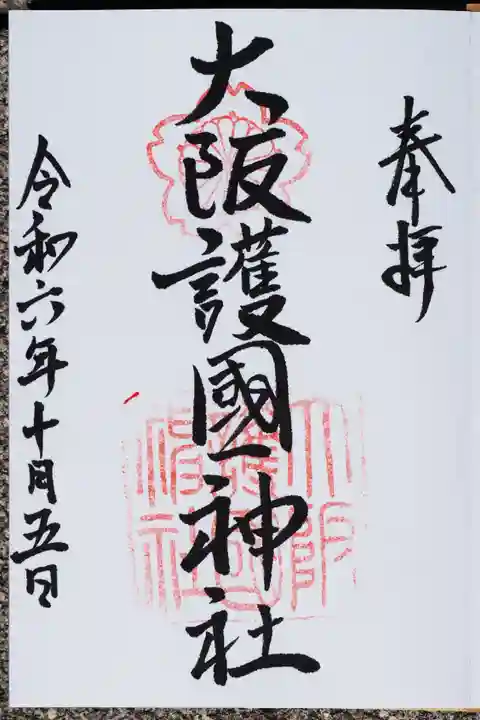 奉拝
大阪護國神社
令和六年十月五日